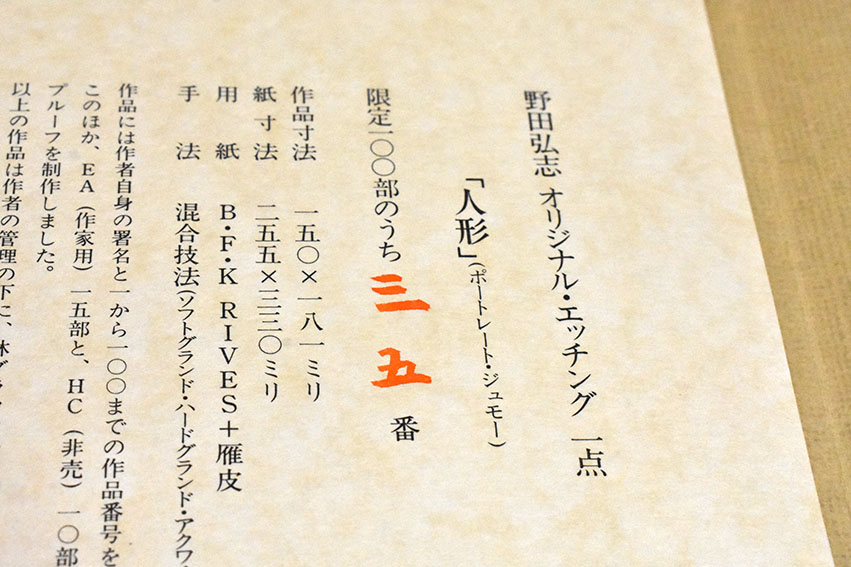 野田弘志 オリジナル・エッチング 一点
「人形」(ポートレート・ジュモー)
限定一〇〇部のうち 三五 番
作品寸法 一五〇×一八一ミリ
紙寸法 二五五×三三〇ミリ
用紙 B・F・K RIVES＋雁皮
手法 混合技法(ソフトグランド・ハードグランド・アクワ
作品には作者自身の署名と一から一〇〇までの作品番号を
このほか、EA(作家用)一五部と、HC(非売)一〇部
プルーフを制作しました。
以上の作品は作者の管理の下に、